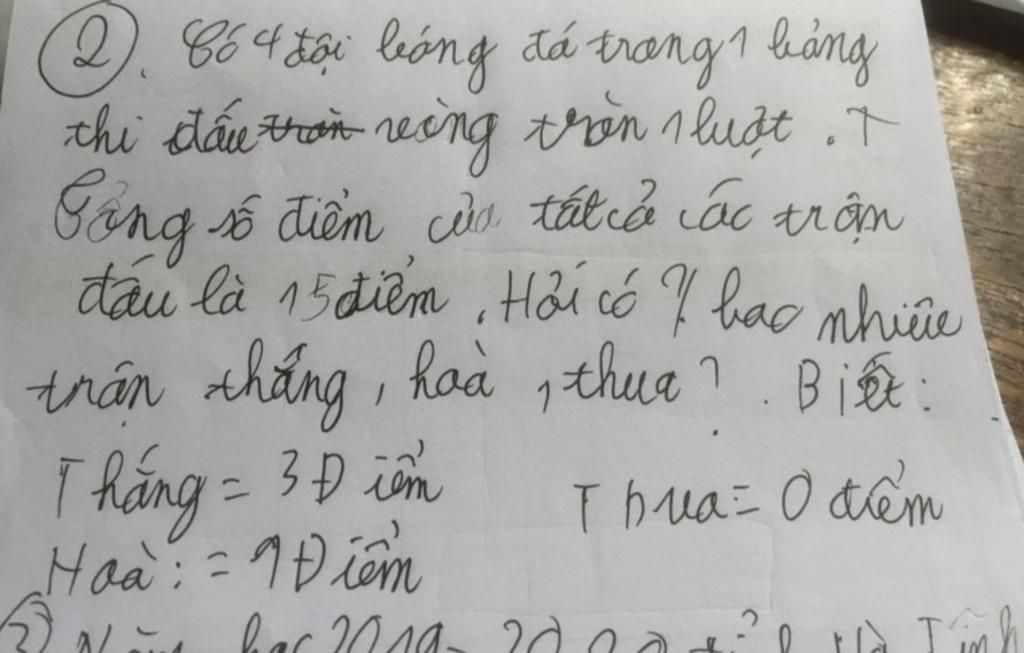 ②. Có 4 đội bóng đá trong 1 bảng
thi đấu vòng tròn 1 luợt. T
Cổng số điểm của tất cả các trận
đấu là 15 điểm. Hỏi có bao nhiêu
trận thắng, hoà, thua? Biết:
Thắng = 3 Điểm Thua = 0 điểm
Hoà: = 1 Điểm
③ Năm học 2019-2020